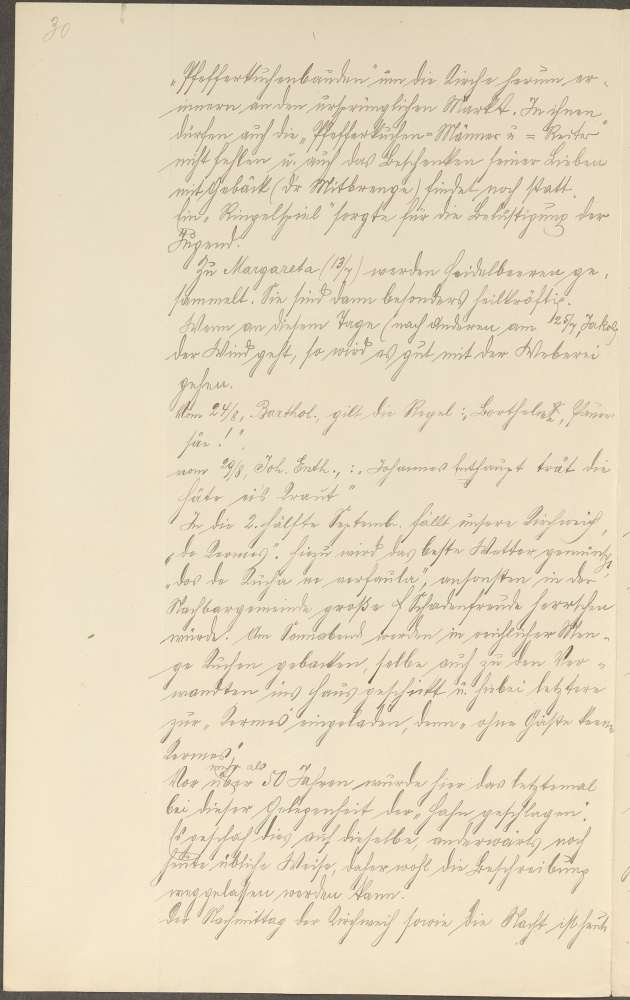 30
„Pfefferkuchenbauden" um die Kirche herum er-
innern an den ursprünglichen Markt. In ihnen
dürfen auch die „Pfefferkuchen-Männer u = Reiter"
nicht fehlen u. auch das Beschenken seiner Lieben
mit Gebäck (dr Mitbrenge) findet noch statt.
Ein „Ringelspiel" sorgte für die Belustigung der
Jugend.
Zu Margareta (13/7) werden Heidelbeeren ge-
sammelt. Sie sind dann besonders heilkräftig.
Wenn an diesem Tage (nach Anderen am 25/7, Jakob)
der Wind geht, so wird es gut mit der Weberei
gehen.
Vom 24/8, Barthol., gilt die Regel: „Barthelmä,
säe!",
vom 29/8, Joh. Enth.,: „Johannes Enthaupt trät die
Häte eis Kraut"
In die 2. Hälfte Septemb. fällt unsere Kirchweih,
„de Kermes". Hiezu wird das beste Wetter gewünscht,
„dos de Kucha ne verfaula", ansonsten in der
Nachbargemeinde große Schadenfreude herrschen
würde. Am Sonnabend werden in reichlicher Men-
ge Kuchen gebacken, selbe auch zu den Ver-
wandten ins Haus geschickt u. hiebei letztere
zur „Kermes" eingeladen, denn „ohne Gäste keene
Kermes".
mehr als
Vor über 50 Jahren wurde hier das letztemal
bei dieser Gelegenheit der „Hahn geschlagen".
Es geschah dies auf dieselbe, anderwärts noch
heute übliche Weise, daher wohl die Beschreibung
weggelassen werden kann.
Der Nachmittag der Kirchweih sowie die Nacht ist heute